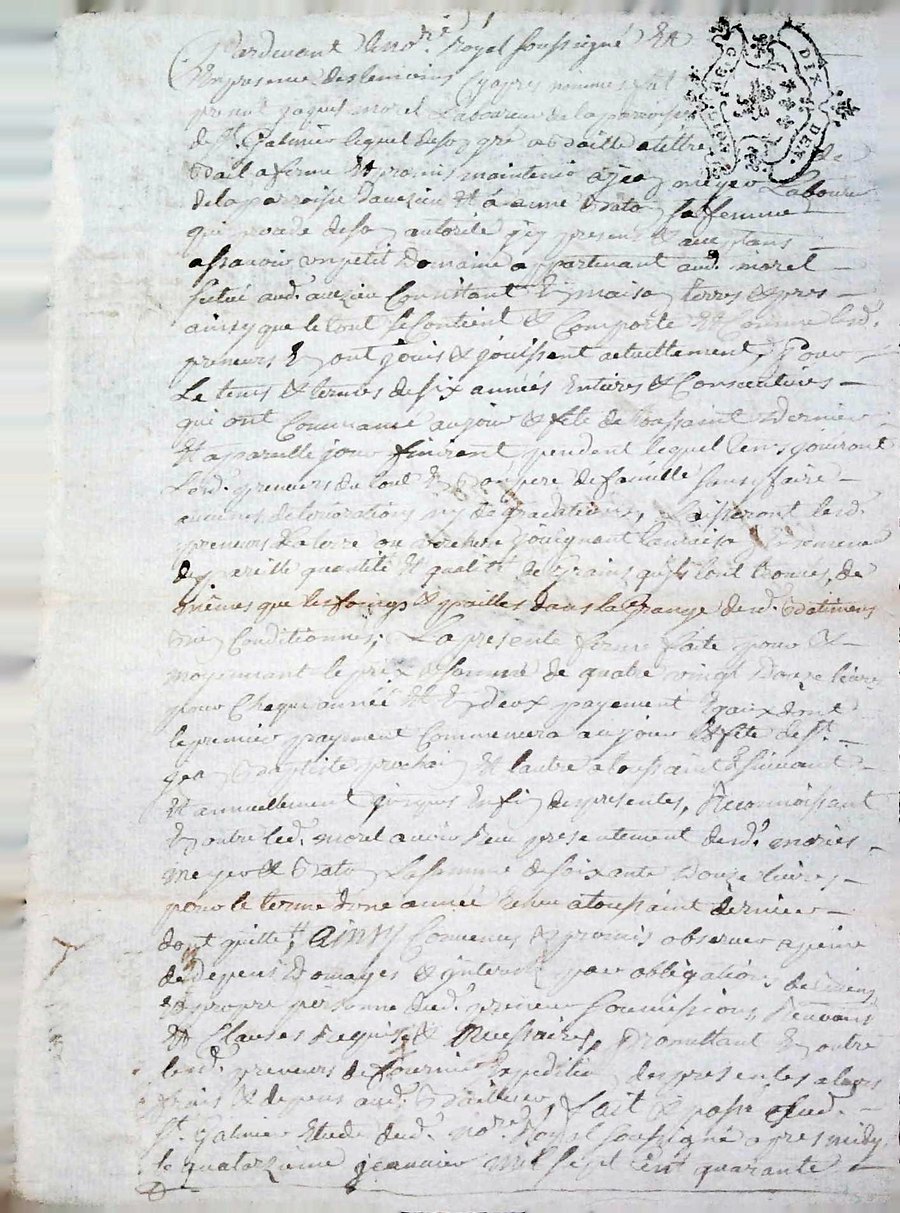 Pardevant le no.re Royal soussigné Et
En presence des temoins cyapres nommes fut
present jaques morel Laboureur de la parroisse
de S.t Galmier lequel de son gré a baille a tittre de
Bail a ferme Et promis maintenir a jean meyer Laboureur
de la parroisse daveizieu Et a anne Bato sa femme
qui procede de son autorité y present & acceptans
assavoir un petit domaine appartenant aud. morel
situé aud. aveizieu Consistant En maison terres & pres
ainsy que le tout se Contient & Comporte Et Comme lesd.
preneurs En ont jouis & jouissent actuellement, Pour
Le tems & termes de six années Entieres & Consecutives
qui ont Commancé au jour & fete de toussaint dernier
Et a pareille jour finiront pendent lequel tems jouiront
Lesd. preneurs du tout En bon pere de famille sans y faire
aucunes deteriorations ny degradations, Laisseront lesd.
preneurs la terre ou verchere joignant la maison Ensemencé
de pareille quantité Et qualité de grains quils l'ont trouvés, de
mêmes que les foings & pailles dans la Grange desd. Batimens
bien Conditionnes, La presente ferme faite pour &
moyennant le prix & somme de quatre vingt douze livres
pour Chaque année Et En deux payement Egaux dont
le premier payement Commencera au jour & fete de S.t
jean Baptiste prochain Et l'autre a toussaint Ensuivant
Et annuellement jusques En fin des presentes, Reconnoissant
En outre led. morel avoir Reçu presentement desd. mariés
meyer & Bato La somme de soixante douze livres
pour le terme d'une année Echue a toussaint dernier
dont quitte, ainsy Convenus & promis observer a peine
de depens domages & interets par obligation de biens
Et propre personne dud. preneur soumissions Renonciations
Et Clauses Requises & Necessaires, Promettant En outre
lesd. preneurs de fournir Expedition des presentes a leurs
frais & depens aud. Bailleur, fait & passé aud.
S.t Galmier Etude dud. no.re Royal soussigné apres midy
le quatorzieme jeanvier mil sept cent quarante
DIX DEN.